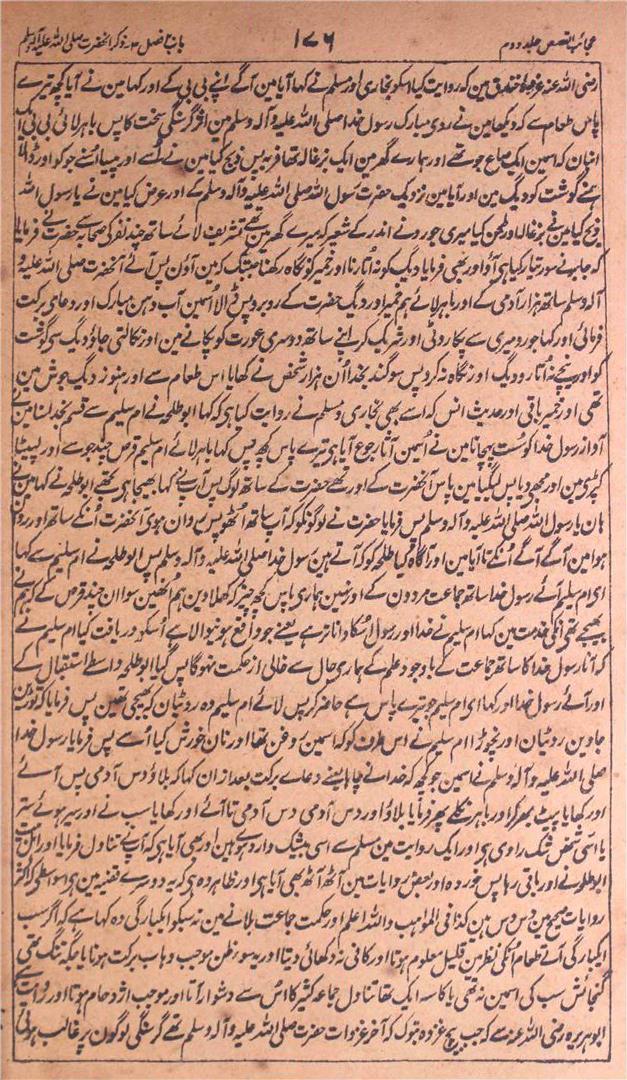 عجائب القصص جلد دوم ۱۷۶ باب ۲ فصل ۳ ذکر آنحضرت صلی اللہ علیہ وآلہ وسلم
رضی اللہ عنہ غزوۂ خندق مین کہ روایت کیا اسکو بخاری اور مسلم نے کہا آیا مین آگے اپنے بی بی کے اور کہا مین نے آیا کچھ تیرے
پاس طعام ہے کہ دیکھا مین نے روی مبارک رسول خدا صلی اللہ علیہ وآلہ وسلم مین اثر گرسنگی سخت کا پس باہر لائی بی بی ایک
انبان کہ اسمین ایک صاع جو تھے اور ہمارے گھر مین ایک بزغالہ تھا فربہ پس ذبح کیا مین نے اُسے اور پیسا اُسنے جو کو اور ڈالا
ہمنے گوشت کو دیگ مین اور آیا مین نزدیک حضرت رسول اللہ صلی اللہ علیہ وسلم کے اور عرض کیا مین نے یا رسول اللہ
ذبح کیا مین نے بزغالہ اور طحن کیا میری جورو نے اندر کے شعیر کو میرے گھر مین تھے تشریف لائے ساتھ چند نفر کی صحابہ سے حضرت نے فرمایا
کہ جابر نے سور تیار کیا ہی آؤ اور بھی فرمایا دیگ کو نہ اُتارنا اور خمیر کو نگاہ رکھنا جبتک کہ مین آؤن پس آئے آنحضرت صلی اللہ علیہ و
آلہ وسلم ساتھ ہزار آدمی کے اور باہر لائے ہم خمیر اور دیگ حضرت کے روبرو پس ڈالا اُسمین آب دہن مبارک اور دعای برکت
فرمائی اور کہا جورو میری سے پکا روٹی اور شریک کر اپنے ساتھ دوسری عورت کو پکانے مین اور نکالتی جاؤ دیگ سی گوشت
کو اور نیچے نہ اُتارو دیگ اور نگاہ نہ کرو پس سوگند بخدا اُن ہزار شخص نے کھایا اس طعام سے اور ہنوز دیگ جوش مین
تھی اور خمیر باقی اور حدیث انس کہ اسے بھی بخاری و مسلم نے روایت کیا ہی کہ کہا ابو طلحہ نے ام سلیم سے قسم بخدا سنا مین نے
آواز رسول خدا کو سُست پہچانا مین نے اُسمین آثار جوع آیا ہی تیرے پاس کچھ پس کہا ہا باہر لائے ام سلیم قرص چند جو سے اور لپیٹا
کپڑی مین اور مجھے دیا پس لیگیا مین پاس آنحضرت کے اور تھے حضرت کے ساتھ لوگ پس آپ نے کہا بھیجا ہی تجھے ابو طلحہ نے کہا مین نے
ہان یا رسول اللہ صلی اللہ علیہ وآلہ وسلم پس فرمایا حضرت نے لوگونکو کہ آپ ساتھ اُٹھو پس روان ہوی آنحضرت اُنکے ساتھ اور روان
ہوا مین آگے آگے اُنکے تا آیا مین اور آگاہ کیا طلحہ کو کہ آتے ہین رسول خدا صلی اللہ علیہ وآلہ وسلم پس ابو طلحہ نے ام سلیم سے کہا
ای ام سلیم آئے رسول خدا ساتھ جماعت مردون کے اور نہین ہماری پاس کچھ چیز کہ کھلاوین ہم اُنھین سوا ان چند قرص کے کہ ہم نے
بھیجے تھی انکی خدمت مین کہا ام سلیم نے خدا اور رسول اسکا داناتر ہے یعنے جو واقع ہونیوالا ہے اُسکو دریافت کیا ام سلیم نے
کہ آنا رسول خدا کا ساتھ جماعت کے باوجود علم کے ہماری حال سے خالی از حکمت نہوگا پس گیا ابو طلحہ واسطے استقبال کے
اور آئے رسول خدا اور کہا ای ام سلیم جو تیرے پاس ہے حاضر کر پس لائے ام سلیم وہ روٹیان کہ بھیجی تھین پس فرمایا کہ توڑی
جاوین روٹیان اور نچوڑا ام سلیم نے اس ظرف کو کہ اسمین روغن تھا اور نان خورش کیا اُسے پس فرمایا رسول خدا
صلی اللہ علیہ و آلہ وسلم نے اسمین جو کچھ کہ خدا نے چاہا یعنے دعاے برکت بعد ازان کہا کہ بلاؤ دس آدمی پس آئے
اور کھایا پیٹ بھر کر اور باہر نکلے پھر فرمایا بلاؤ اور دس آدمی دس آدمی تا آئے اور کھایا سب نے اور سیر ہوئے ستر
یا اسّی شخص شک راوی ہی اور ایک روایت مین مسلم کے اسی بیشک وارد ہوے ہین اور بھی آیا ہی کہ آپ نے تناول فرمایا اور اہل بیت
ابو طلحہ نے اور باقی رہا پس خوردہ اور بعض روایات مین آٹھ آٹھ بھی آیا ہی اور ظاہر وہ ہی کہ یہ دوسرے قضیہ مین ہی اسواسطے کہ اکثر
روایات صحیح مین دس دس ہین کذا فی المواہب واللہ اعلم اور حکمت جماعت بلانے مین نہ سبکو ایکبارگی وہ کہا ہے کہ اگر سب
ایکبارگی آتے طعام اُنکی نظر مین قلیل معلوم ہوتا اور کافی نہ دکھائی دیتا اور یہ سوء ظن موجب ذہاب برکت ہوتا یا جگہ تنگ تھی
گنجائش سب کی اسمین نہ تھی یا کاسہ ایک تھا تناول جماعہ کثیر کا اس سے دشوار آتا اور موجب اژدحام ہوتا اور روایت ہے
ابو ہریرہ رضی اللہ عنہ سے کہ جب بیچ غزوہ تبوک کہ آخر غزوات حضرت صلی اللہ علیہ وآلہ وسلم تھے گرسنگی لوگون پر غالب ہوئی